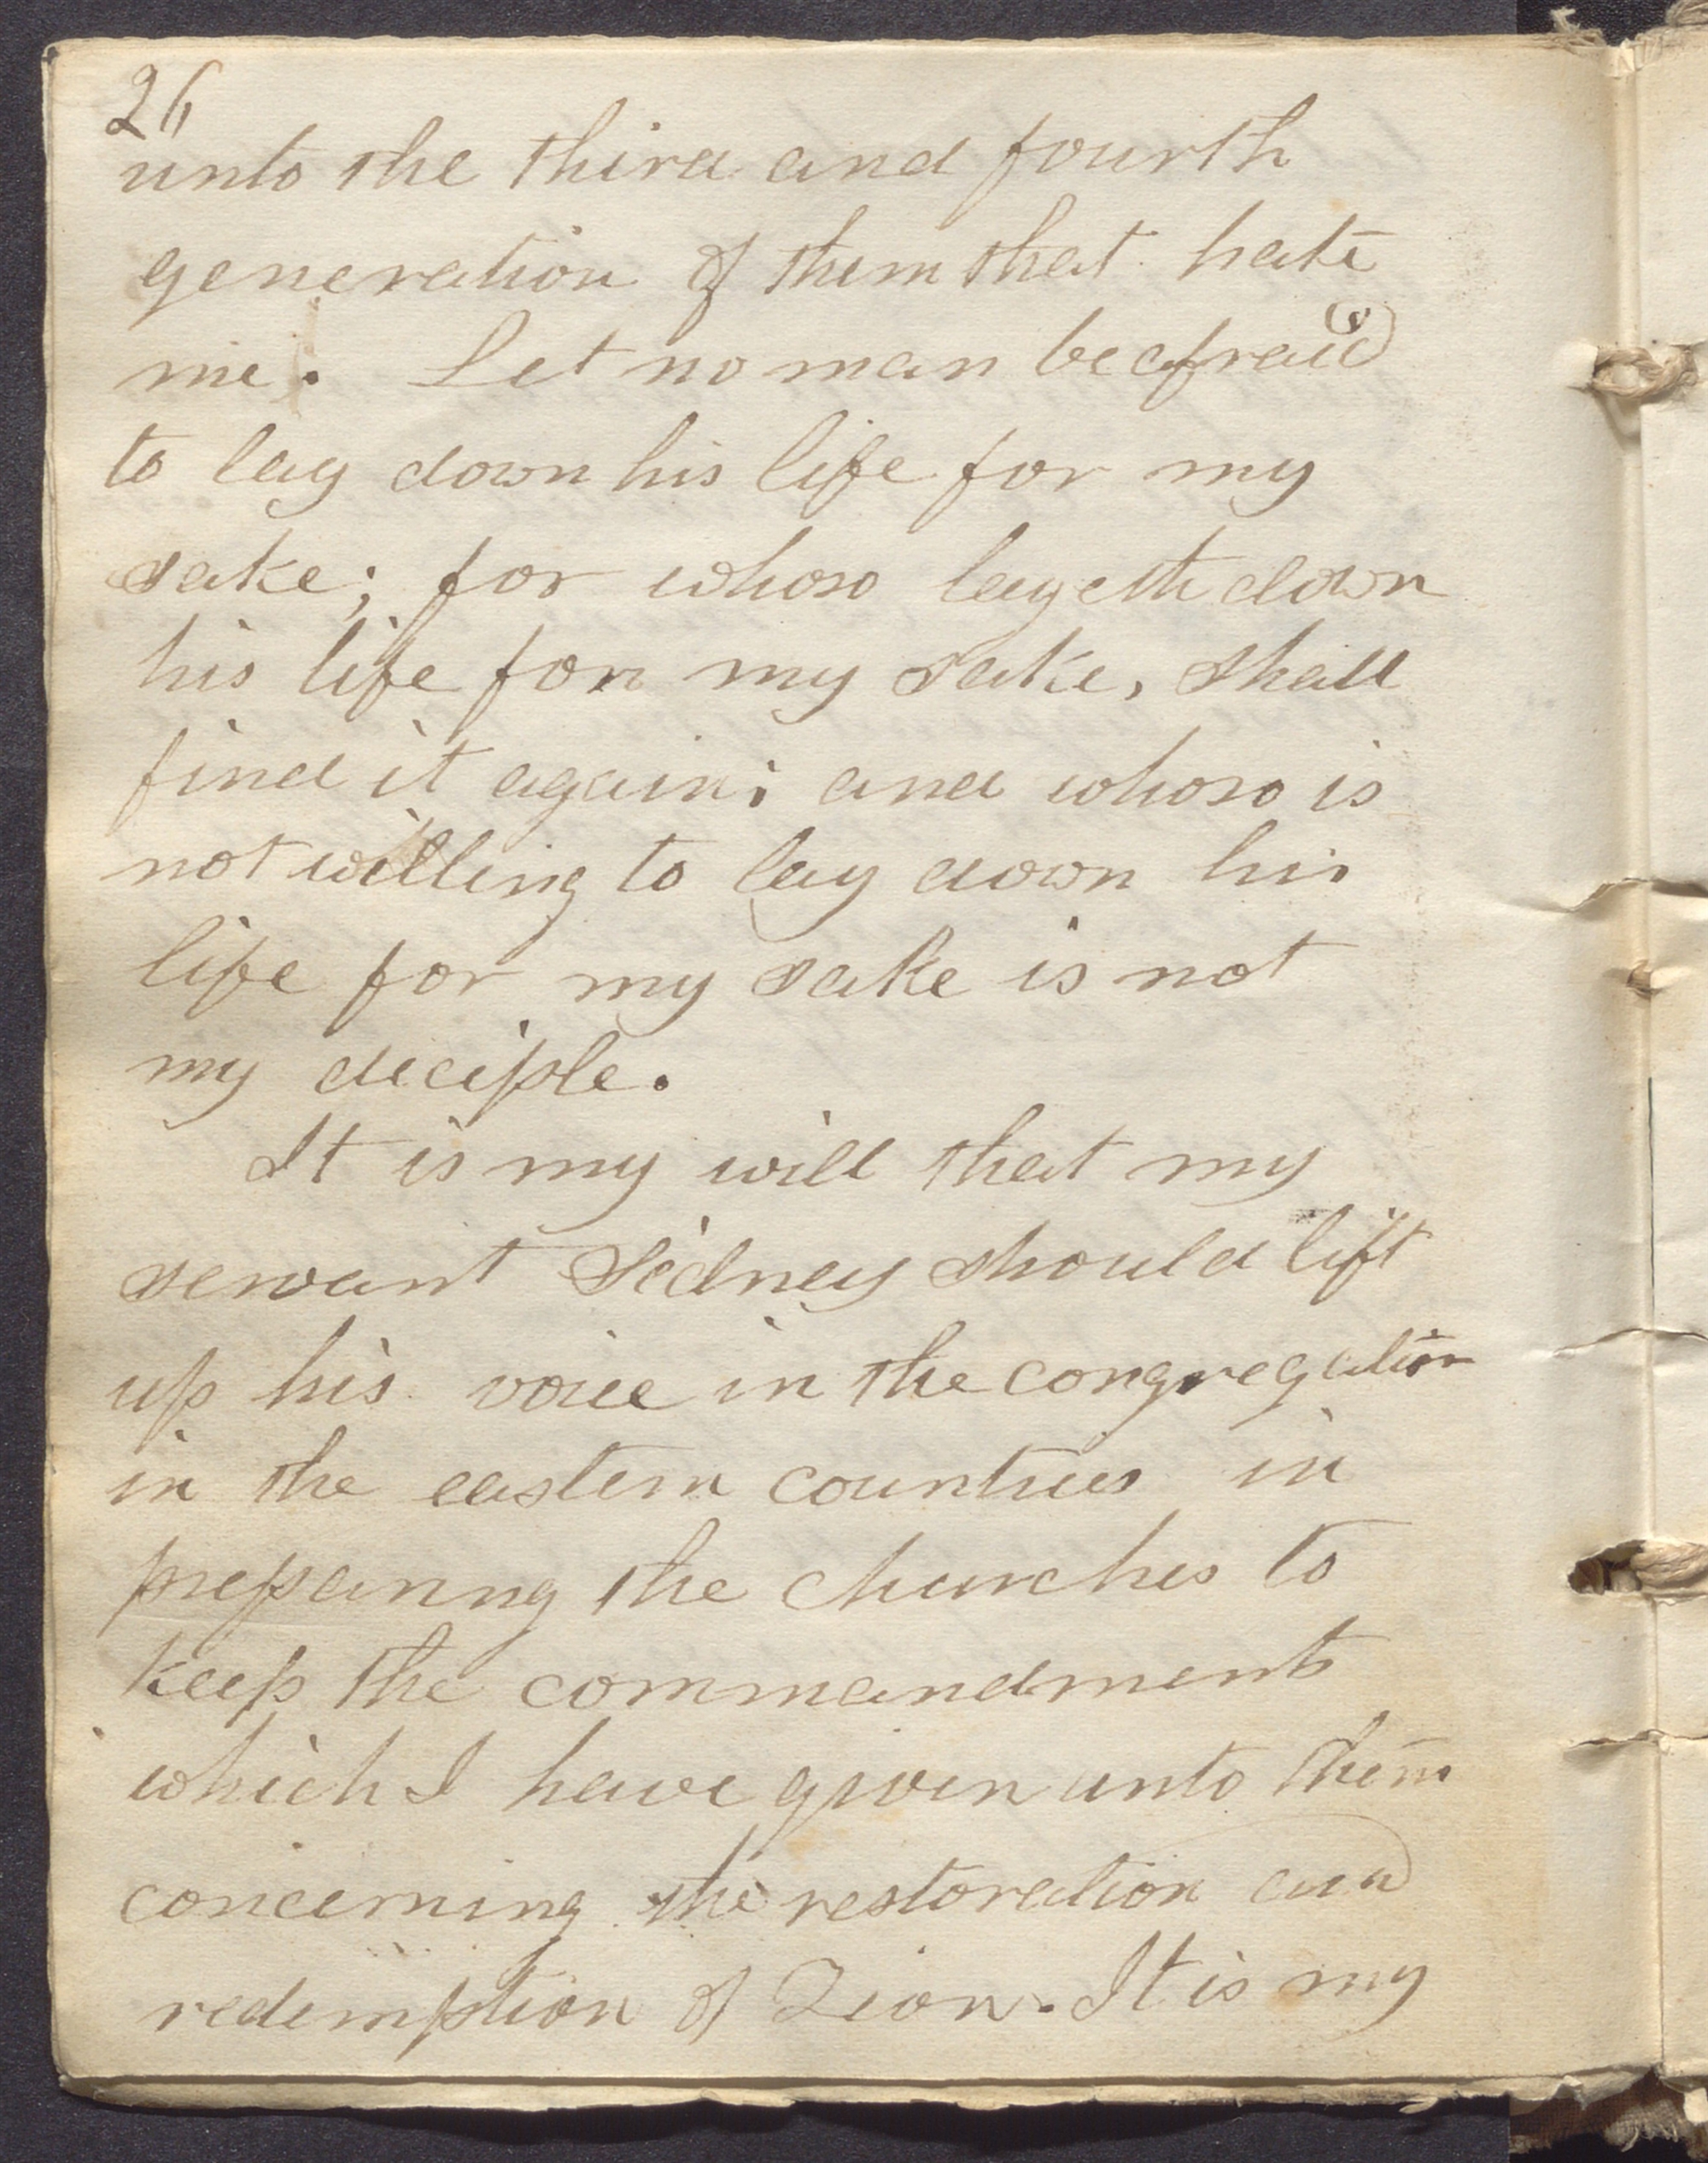 26
unto the third and fourth
generation of them that hate
me. Let no man be afraid
to lay down his life for my
sake; for whoso layeth down
his life for my sake, shall
find it again; and whoso is
not willing to lay down his
life for my sake is not
my deciple.
It is my will that my
servant Sidney should lift
up his voice in the congregation
in the eastern countries in
preparing the churches to
keep the commandments
which I have given unto them
concerning the restoration and
redemption of Zion. It is my